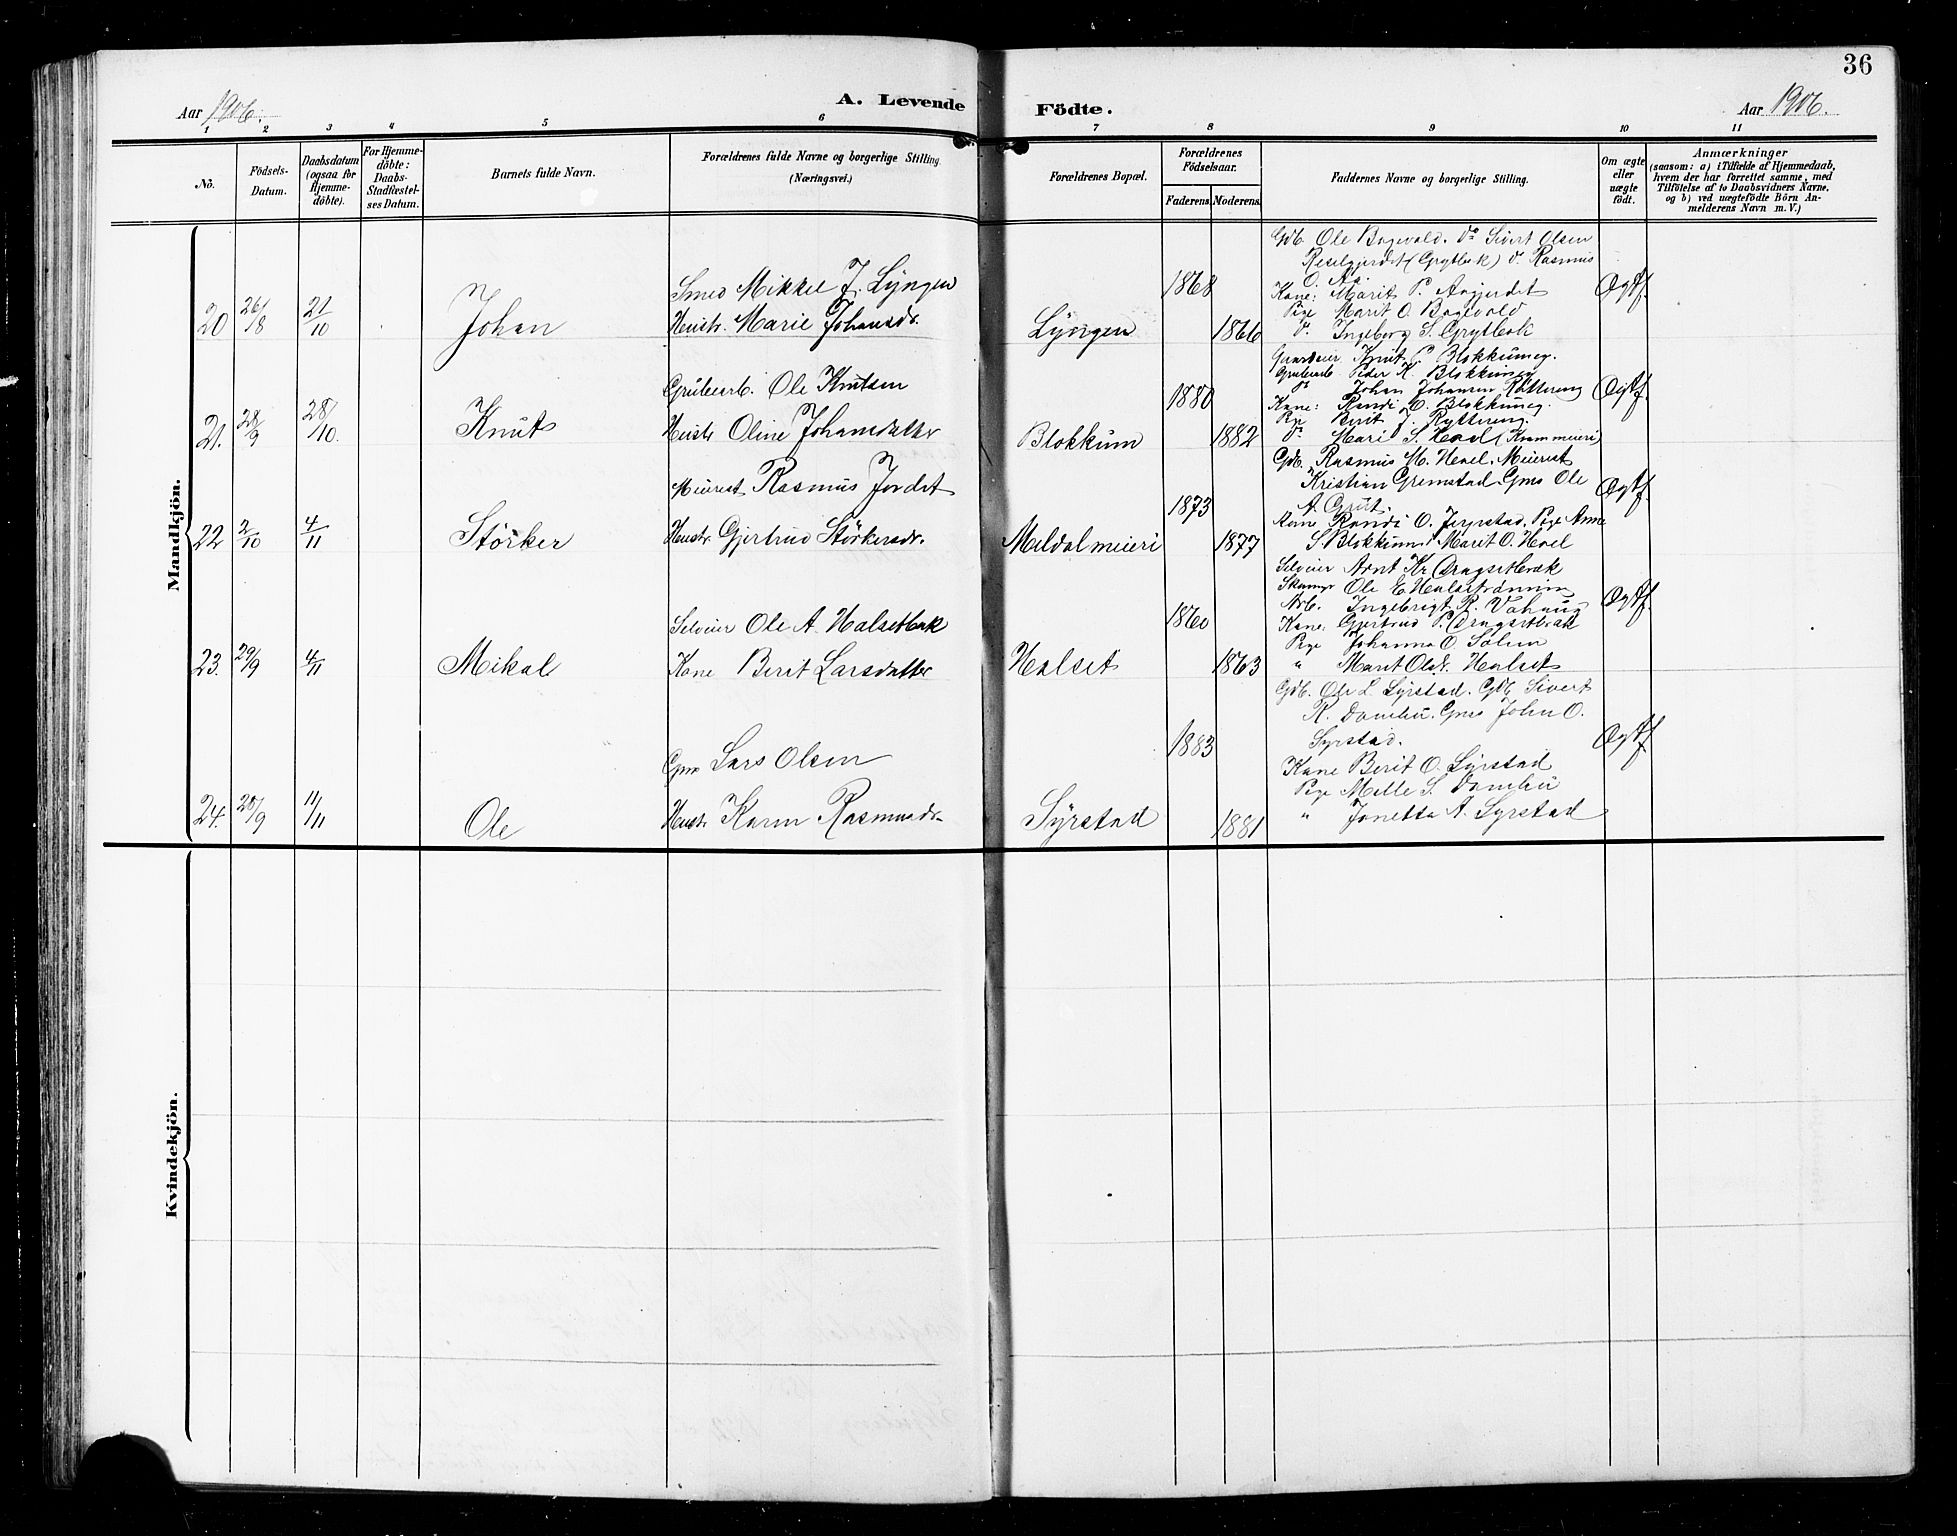 36
Aar 1906.
A. Levende
Födte.
Aar 1906.
1 2 3 4 5 6 7 8 9 10 11
No.
Födsels-
Datum.
Daabsdatum
(ogsaa for
Hjemme-
döbte).
For Hjemme-
döbte:
Daabs-
Stadfæstel-
ses Datum.
Barnets fulde Navn.
Forældrenes fulde Navne og borgerlige Stilling.
(Næringsvei.)
Forældrenes Bopæl.
Forældrenes
Födselsaar.
Faderens.
Moderens.
Faddernes Navne og borgerlige Stilling.
Om ægte
eller
uægte
födt.
Anmærkninger
(saasom: a) i Tilfælde af Hjemmedaab,
hvem der har forrettet samme, med
Tilföielse af to Daabsvidners Navne,
og b) ved uægtefödte Börn An-
melderens Navn m. V.)
Mandkjön.
20 26/8 21/10 Johan
Smed Mikkel J. Lyngen
Hustr. Marie Johansdr.
Lyngen 1868 1866
Gdb. Ole Bogevold. do Sivert Olsen
(Grytbak) d. Rasmus
O. Aa.
Kone: Marit P. Aagjerdet
Pige Marit O. Bogevold
d. Ingeborg S. Grytbak
Ægtf.
21. 28/9 28/10. Knut
Grubearb. Ole Knutsen
Hustr Oline Johansdatter
Blokkum 1880 1882
Gaardeier Knut P. Blokkumeg.
Grubearb. Peder K. Blokkumeg
do Johan Johansen Ryttereng
Kone: Randi O. Blokkumeg.
Pige Berit J. Ryttereng.
do Mari S. Hoel (Krammeieri)
Ægtf.
22 2/10 4/11 Störker
Meierist Rasmus Jordet
Hustr. Gjertrud Störkersdr.
Meldal meieri 1873 1877
Gdb. Rasmus M. Hoel. Meierist
Kristian Gremstad. Gms Ole
A. Grut.
Kone Randi O. Jerpstad. Pige Anne
S. Blokkum, Marit O. Hoel
Ægtf.
23. 29/9 4/11 Mikal
Selveier Ole A. Halsetbak
Kone Berit Larsdatter
Halset 1860 1863
Selveier Arnt Kr. Dragsetbræk
Ole E. Halsetrønning
Arb. Ingebrigt R. Vahaug
Kone: Gjertrud P. Dragsetbræk
Pige Johanna O. Solem
" Marit Olsdr. Halset
Ægtf.
24. 20/9 11/11 Ole
Gms Lars Olsen
Hustr. Karen Rasmusdr.
Syrstad 1883 1881
Gdb. Ole L. Syrstad. Gdb. Sivert
R. Damhu. Gms John O.
Syrstad.
Kone Berit O. Syrstad
Pige Melle S. Damhu
" Jonetta A. Syrstad
Ægtf.
Kvindekjön.